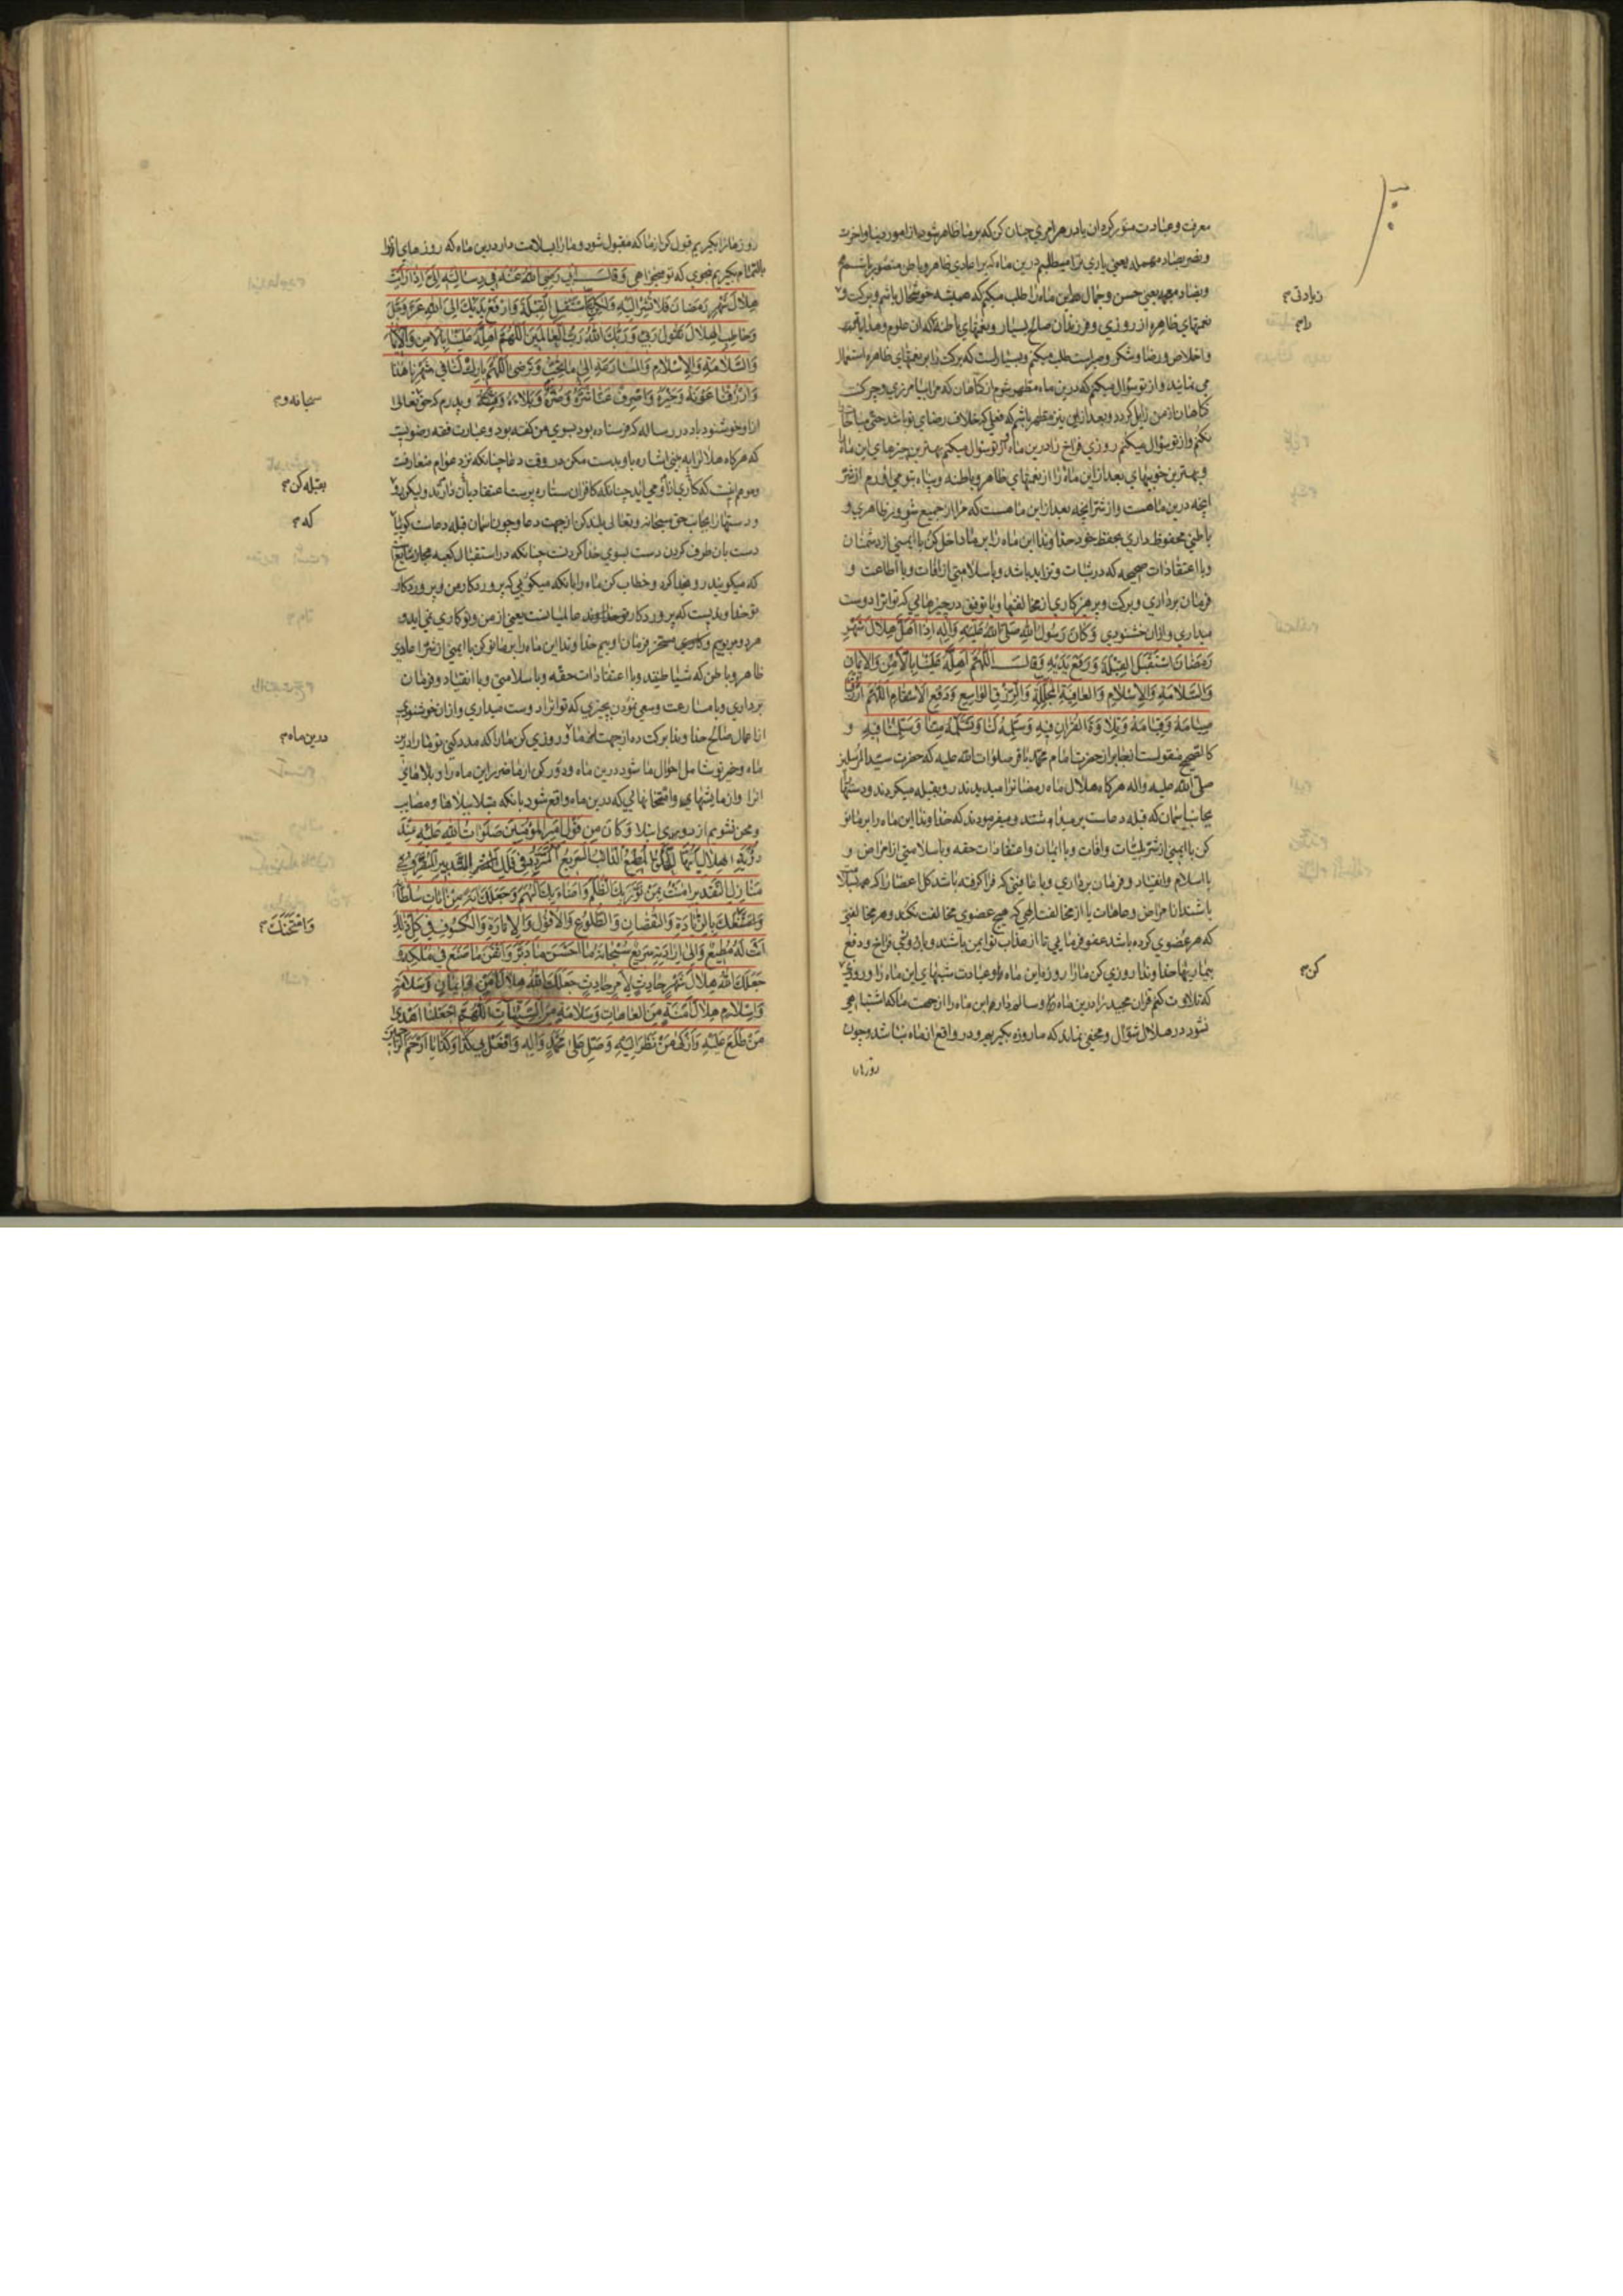 معرفت و عبادت منور کردان یا در هر امری چنان کن که بر ما ظاهر شود از امور دنیا و آخرت
و نصر بصاد مهمله یعنی یاری ترا میطلبم درین ماه که بر اعادی ظاهر و باطن منصور باشم
و بضاد معجمه یعنی حسن و جمال این ماه را طلب میکنم که همیشه خوشحال باشم و برکت و
زیادتی
نعمتهای ظاهره از روزی و فرزندان صالح بسیار و نعمتهای باطنه که آن علوم
را
و اخلاص و رضا و شکر و صبر است طلب میکنم و بسیار است که برکت را بر نعمتهای ظاهره استعمال
می نمایند و از تو سؤال میکنم که درین ماه مطهر شوم از کناهان که مرا بیامرزی و چرک
کناهان از من زایل کردد و بعد ازین نیز مطهر باشم که فعلی که خلاف رضای تو باشد حتی مباحات
نکنم و از تو سؤال میکنم روزی فراخ را درین ماه و از تو سؤال میکنم بهترین چیزهای این ماه
و بهترین خوبیهای بعد از این ماه را از نعمتهای ظاهر و باطنه و پناه بتو می آورم از شر
آنچه درین ماهست و از شر آنچه بعد از این ماهست که مرا از جمیع شرور ظاهری و
باطنی محفوظ داری بحفظ خود خداوندا این ماه را بر ما داخل کن با ایمنی از دشمنان
و با اعتقادات صحیحه که در ثبات و تزاید باشد و با سلامتی از آفات و با اطاعت و
فرمان برداری و برکت و پرهزکاری از مخالفتها و با توفیق در چیزهائی که تو آنرا دوست
میداری و از آن خشنودی وَکَانَ رَسُولُ اللهِ صَلَّی اللهُ عَلَیْهِ وَآلِهِ اِذَا اَهَلَّ هِلَالُ شَهْرِ
رَمَضَانَ اسْتَقْبَلَ الْقِبْلَةَ وَرَفَعَ یَدَیْهِ وَقَالَ اللّٰهُمَّ اَهِلَّهُ عَلَیْنَا بِالْاَمْنِ وَالْاِیمَانِ
وَالسَّلَامَةِ وَالْاِسْلَامِ وَالْعَافِیَةِ الْمُجَلِّلَةِ وَالرِّزْقِ الْوَاسِعِ وَدَفْعِ الْاَسْقَامِ اللّٰهُمَّ ارْزُقْنَا
صِیَامَهُ وَقِیَامَهُ وَتِلَاوَةَ الْقُرْآنِ فِیهِ وَسَلِّمْهُ لَنَا وَتَسَلَّمْهُ مِنَّا وَسَلِّمْنَا فِیهِ و
کالصحیح منقولست از جابر از حضرت امام محمد باقر صلوات الله علیه که حضرت سید المرسلین
صلی الله علیه و آله هرکاه هلال ماه رمضان را میدیدند رو بقبله میکردند و دستها
بجانب آسمان که قبله دعاست بر میداشتند و میفرمودند که خداوندا این ماه را بر ما نو
کن با ایمنی از شر بلیات و آفات و با ایمان و اعتقادات حقه و با سلامتی از امراض و
با اسلام و انقیاد و فرمان برداری و با عافیتی که فرا کرفته باشد کل اعضا را که همه
باشند از امراض و عاهات یا از مخالفت الهی که هیچ عضوی مخالفت نکند و هر مخالفتی
که هر عضوی کرده باشد عفو فرمایی تا از عذاب تو ایمن باشند و با روزی فراخ و دفع
بیماریها خداوندا روزی کن ما را روزه این ماه و عبادت شبهای این ماه را و روزی
کن
که تلاوت کنم قرآن مجید را درین ماه و سالم دار این ماه را از جهت ما که اشتباهی
نشود در هلال شوال و مخفی نماند که ما روزه بکیریم و در واقع از ماه نباشد و چون
روز ما را
روز ما را بکیریم قبول کن از ما که مقبول شود و ما را بسلامت دار درین ماه که روزهای
بالتمام بکیریم بنحوی که تو میخواهی وَقَالَ اَبِی رَضِیَ اللهُ عَنْهُ فِی رِسَالَتِهِ اِلَیَّ اِذَا رَاَیْتَ
هِلَالَ شَهْرِ رَمَضَانَ فَلَا تُشِرْ اِلَیْهِ وَلٰکِنِ اسْتَقْبِلِ الْقِبْلَةَ وَارْفَعْ یَدَیْکَ اِلَی اللهِ عَزَّ وَجَلَّ
وَخَاطِبِ الْهِلَالَ تَقُولُ رَبِّی وَرَبُّکَ اللهُ رَبُّ الْعَالَمِینَ اللّٰهُمَّ اَهِلَّهُ عَلَیْنَا بِالْاَمْنِ وَالْاِیمَانِ
وَالسَّلَامَةِ وَالْاِسْلَامِ وَالْمُسَارَعَةِ اِلَی مَا تُحِبُّ وَتَرْضَی اللّٰهُمَّ بَارِکْ لَنَا فِی شَهْرِنَا هٰذَا
وَارْزُقْنَا عَوْنَهُ وَخَیْرَهُ وَاصْرِفْ عَنَّا شَرَّهُ وَضُرَّهُ وَبَلَاءَهُ وَفِتْنَتَهُ و پدرم که حق تعالی
سبحانه و
از او خوشنود باد در رساله که فرستاده بود بسوی من کفته بود و عبارت فقه رضویست
که هرکاه هلال را به بینی اشاره باو بدست مکن در وقت دعا چنانکه نزد عوام متعارفست
و موهم اینست که کاری از او می آید چنانکه کافران ستاره پرست اعتقاد بآن دارند ولیکن رو
بقبله کن
و دستها را بجانب حق سبحانه و تعالی بلند کن از جهت دعا و چون آسمان قبله دعاست کویا
که
دست بآن طرف کردن دست بسوی خدا کردنست چنانکه در استقبال کعبه مجاز شایع
که میکویند رو بخدا کرد و خطاب کن ماه را بآنکه میکویی که پرورد کار من و پرورد کار
تو خداوندیست که پرورد کار عالمیانست یعنی از من و تو کاری نمی آید و
هر دو مربوبیم و مسخر فرمان اوییم خداوندا این ماه را بر ما نو کن با ایمنی از شر اعادی
ظاهر و باطن که شیاطیند و با اعتقادات حقه و با سلامتی و با انقیاد و فرمان
برداری و با مسارعت و سعی نمودن بچیزی که تو آنرا دوست میداری و از آن خوشنودی
از اعمال صالح خداوندا برکت ده از جهت ما و روزی کن ما را که مدد کنی تو ما را درین
درین ماه
ماه و خیر تو شامل احوال ما شود درین ماه و دور کن از ما ضرر این ماه را و بلاهای
آنرا و آزمایشهای و امتحانهائی که درین ماه واقع شود بآنکه مبتلا ببلاها و مصایب
و محن نشویم وَکَانَ مِنْ قَوْلِ اَمِیرِ الْمُؤْمِنِینَ صَلَوَاتُ اللهِ عَلَیْهِ عِنْدَ
رُؤْیَةِ الْهِلَالِ اَیُّهَا الْخَلْقُ الْمُطِیعُ الدَّائِبُ السَّرِیعُ الْمُتَرَدِّدُ فِی فَلَکِ التَّدْبِیرِ الْمُتَصَرِّفُ فِی
مَنَازِلِ التَّقْدِیرِ آمَنْتُ بِمَنْ نَوَّرَ بِکَ الظُّلَمَ وَاَضَاءَ بِکَ الْبُهَمَ وَجَعَلَکَ آیَةً مِنْ آیَاتِ سُلْطَانِهِ
وَامْتَهَنَکَ بِالزِّیَادَةِ وَالنُّقْصَانِ وَالطُّلُوعِ وَالْاُفُولِ وَالْاِنَارَةِ وَالْکُسُوفِ فِی کُلِّ ذٰلِکَ
وَامْتَحَنَکَ
اَنْتَ لَهُ مُطِیعٌ وَاِلَی اِرَادَتِهِ سَرِیعٌ سُبْحَانَهُ مَا اَحْسَنَ مَا دَبَّرَ وَاَتْقَنَ مَا صَنَعَ فِی مُلْکِهِ وَ
جَعَلَکَ اللهُ هِلَالَ شَهْرٍ حَادِثٍ لِاَمْرٍ حَادِثٍ جَعَلَکَ اللهُ هِلَالَ اَمْنٍ وَاِیمَانٍ وَسَلَامَةٍ
وَاِسْلَامٍ هِلَالَ اَمَنَةٍ مِنَ الْعَاهَاتِ وَسَلَامَةٍ مِنَ السَّیِّئَاتِ اللّٰهُمَّ اجْعَلْنَا اَهْدَی
مَنْ طَلَعَ عَلَیْهِ وَاَزْکَی مَنْ نَظَرَ اِلَیْهِ وَصَلِّ عَلَی مُحَمَّدٍ وَآلِهِ وَافْعَلْ بِی کَذَا وَکَذَا یَا اَرْحَمَ الرَّاحِمِینَ